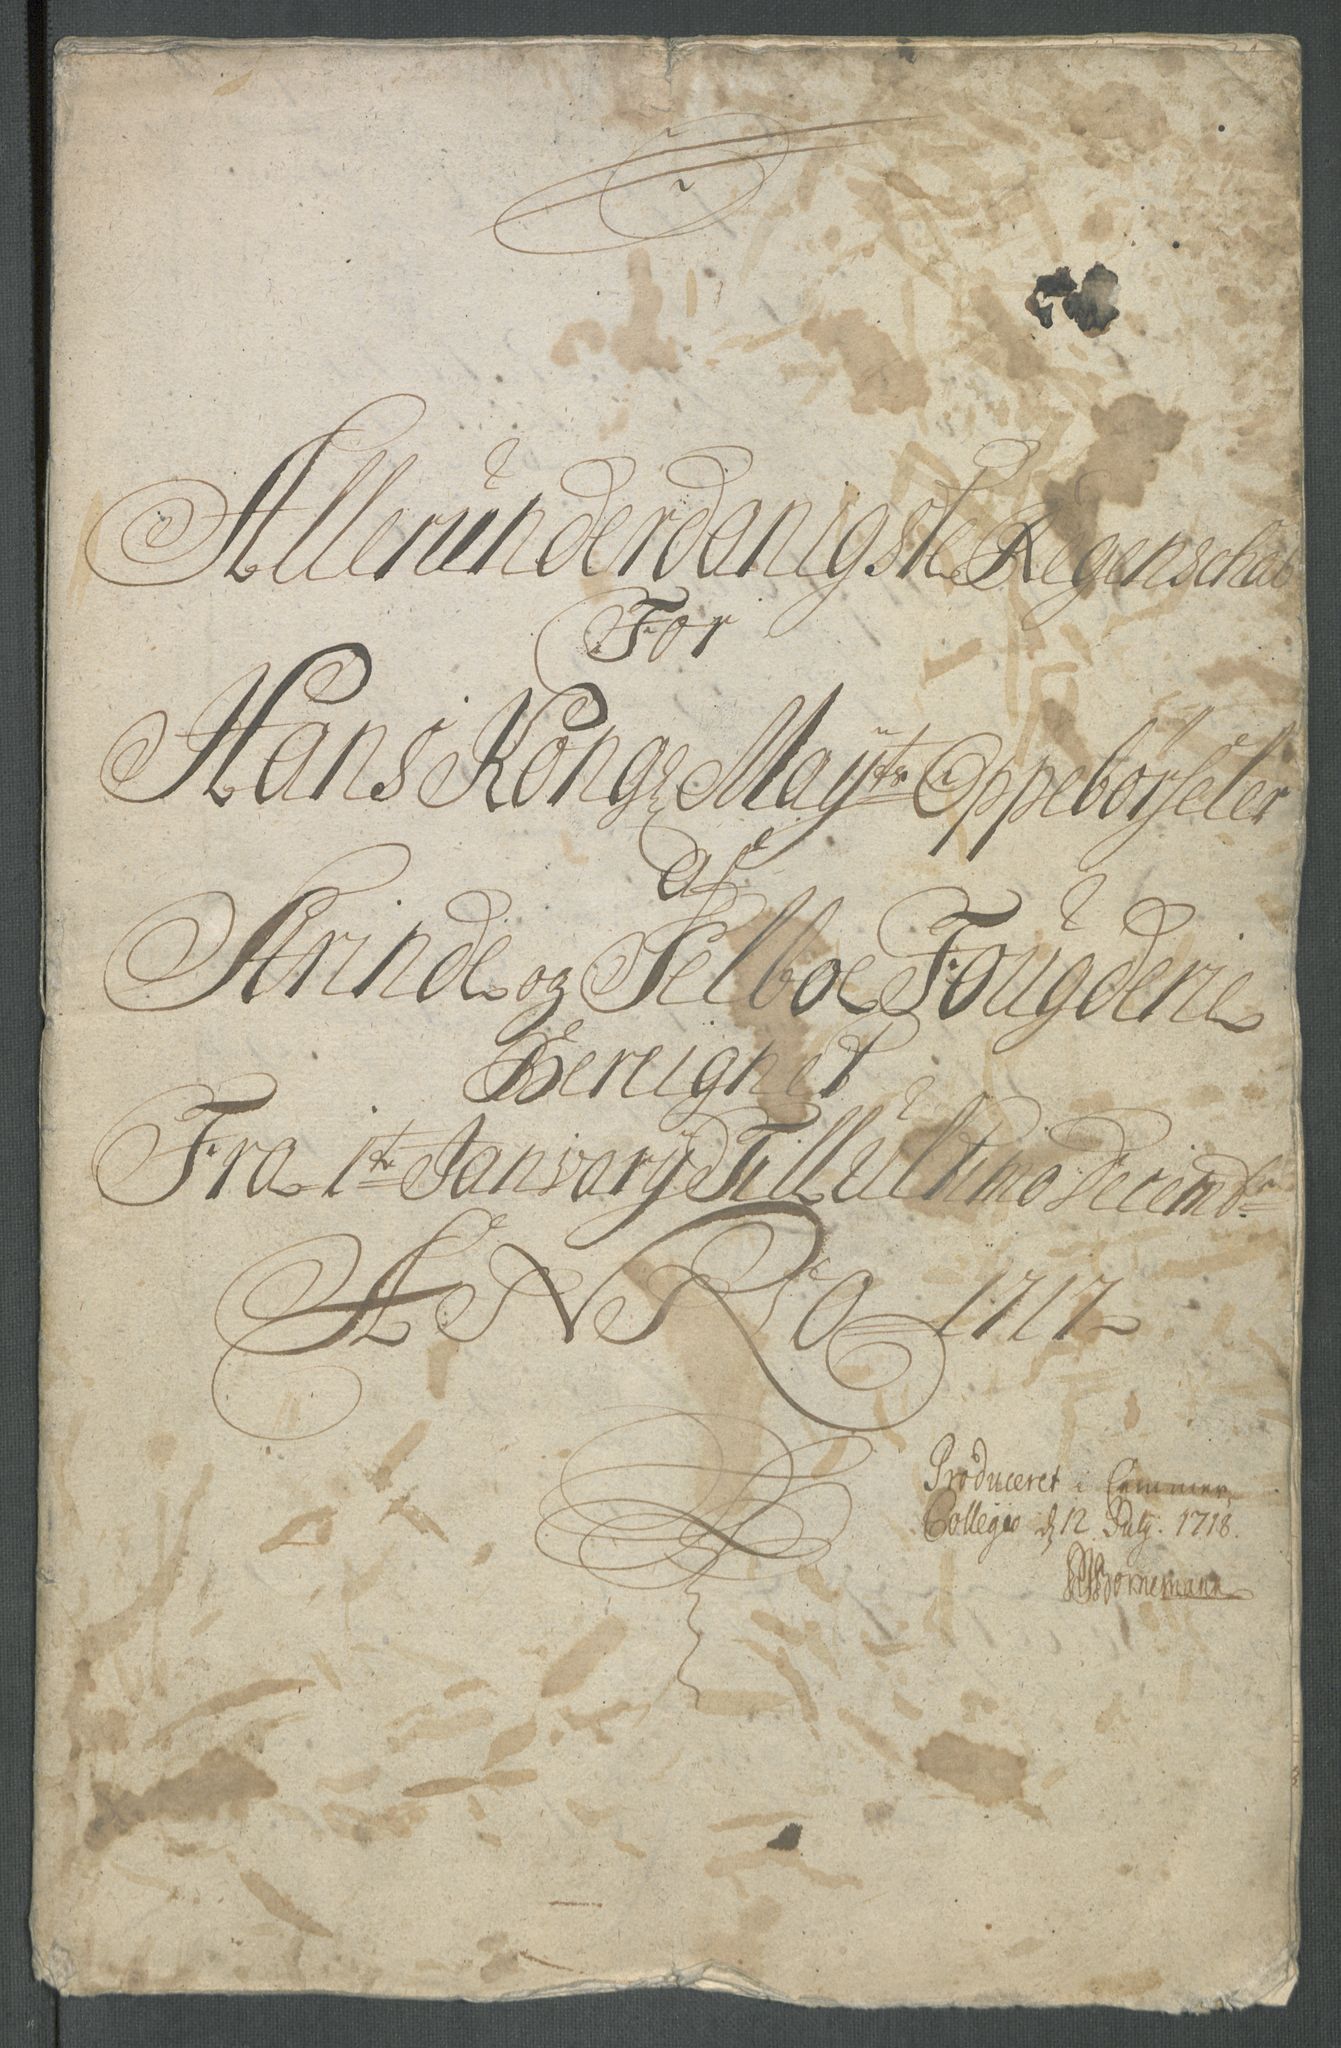 Alleründerdanigste Regenschab
For
Hans Kong: Maytz Oppebørseler
af
Strinde og Selboe Foügderie
Bereignet
Fra 1te January Till Ültimo Decembr
ANNO 1717
Produceret i Cammer
Collegio d 12 July. 1718.
Bornemann